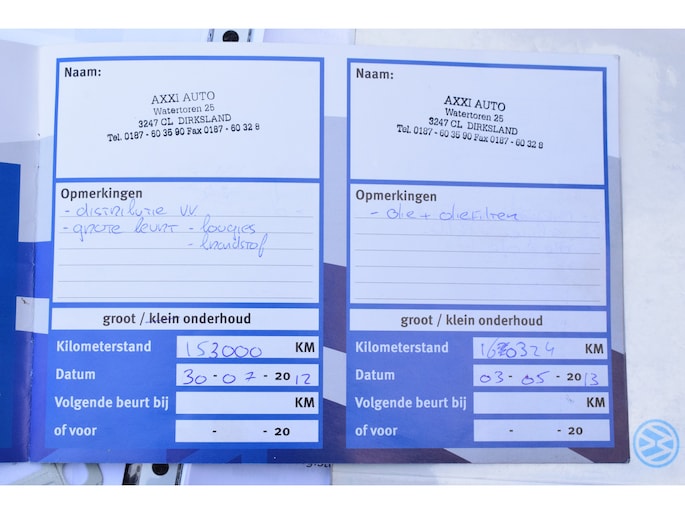 Naam:
AXXI AUTO
Watertoren 25
3247 CL DIRKSLAND
Tel. 0187 - 60 35 90 Fax 0187 - 60 32 8
Opmerkingen
- distributie VV
- grote beurt - bougies
- brandstof
groot / klein onderhoud
Kilometerstand 153000 KM
Datum 30 - 07 - 2012
Volgende beurt bij KM
of voor - - 20
Naam:
AXXI AUTO
Watertoren 25
3247 CL DIRKSLAND
Tel. 0187 - 60 35 90 Fax 0187 - 60 32 8
Opmerkingen
- olie + oliefilter
groot / klein onderhoud
Kilometerstand KM
Datum 03 - 05 - 2013
Volgende beurt bij KM
of voor - - 20